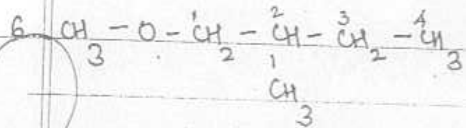 6 CH₃ - O - ¹CH₂ - ²CH - ³CH₂ - ⁴CH₃
|
CH₃